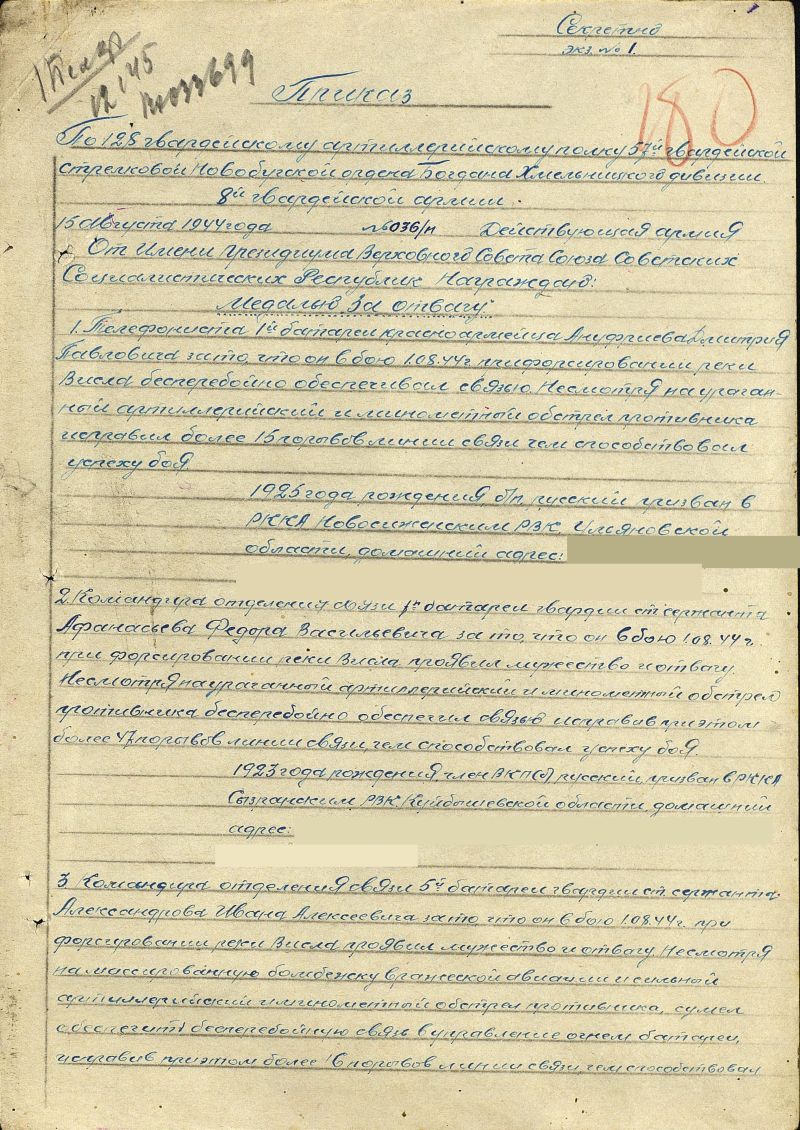 Секретно
экз. № 1.
12 '45
180
Приказ
По 128 гвардейскому артиллерийскому полку 57й гвардейской
стрелковой Новобугской ордена Богдана Хмельницкого дивизии
8й гвардейской армии.
15 августа 1944 года № 036/н Действующая армия
От имени Президиума Верховного Совета Союза Советских
Социалистических Республик Награждаю:
Медалью За отвагу
1. Телефониста 1й батареи красноармейца Ануфриева Дмитрия
Павловича за то, что он в бою 1.08.44 г. при форсировании реки
Висла бесперебойно обеспечивал связью. Несмотря на ураган-
ный артиллерийский и минометный обстрел противника
исправил более 15 порывов линии связи чем способствовал
успеху боя.
1925 года рождения, б/п, русский призван в
РККА РВК, Ульяновской
области, домашний адрес:
2. Командира отделения связи 1й батареи гвардии ст. сержанта
Афанасьева Федора Васильевича за то, что он в бою 1.08.44 г.
при форсировании реки Висла проявил мужество и отвагу.
Несмотря на ураганный артиллерийский и минометный обстрел
противника бесперебойно обеспечил связью исправив при этом
более 17 порывов линии связи, чем способствовал успеху боя.
1923 года рождения, член ВКП(б) русский, призван в РККА
Сызранским РВК, Куйбышевской области, домашний
адрес:
3. Командира отделения связи 5й батареи гвардии ст. сержанта
Александрова Ивана Алексеевича за то, что он в бою 1.08.44 г. при
форсировании реки Висла проявил мужество и отвагу. Несмотря
на массированную бомбежку вражеской авиации и сильный
артиллерийский и минометный обстрел противника, сумел
обеспечить бесперебойную связь в управление огнем батареи,
исправив при этом более порывов линии связи, чем способствовал